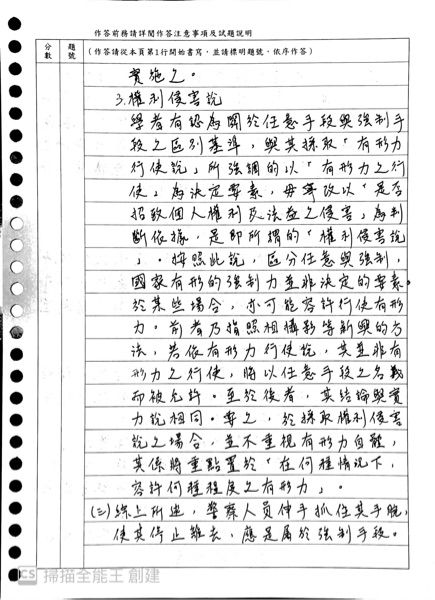 作答前務請詳閱作答注意事項及試題說明
分數
題號
(作答請從本頁第1行開始書寫,並請標明題號,依序作答)
實施之。
3.權利侵害說
學者有認為關於任意手段與強制手
段之區別基準,與其採取「有形力
行使說」所強調的以「有形力之行
使」為決定要素,毋寧改以「是否
招致個人權利及法益之侵害」為判
斷依據,是即所謂的「權利侵害說
」。按照此說,區分任意與強制,
國家有形的強制力並非決定的要素。
於某些場合,亦可能容許行使有形
力。前者乃指照相攝影等新興的方
法,若依有形力行使說,其並非有
形力之行使,將以任意手段之名義
而被允許。至於後者,其結論與實
力說相同。要之,於採取權利侵害
說之場合,並不重視有形力自體,
其係將重點置於「在何種情況下,
容許何種程度之有形力」。
(三)綜上所述,警察人員伸手抓住其手腕,
使其停止離去,應是屬於強制手段。
CS 掃描全能王 創建